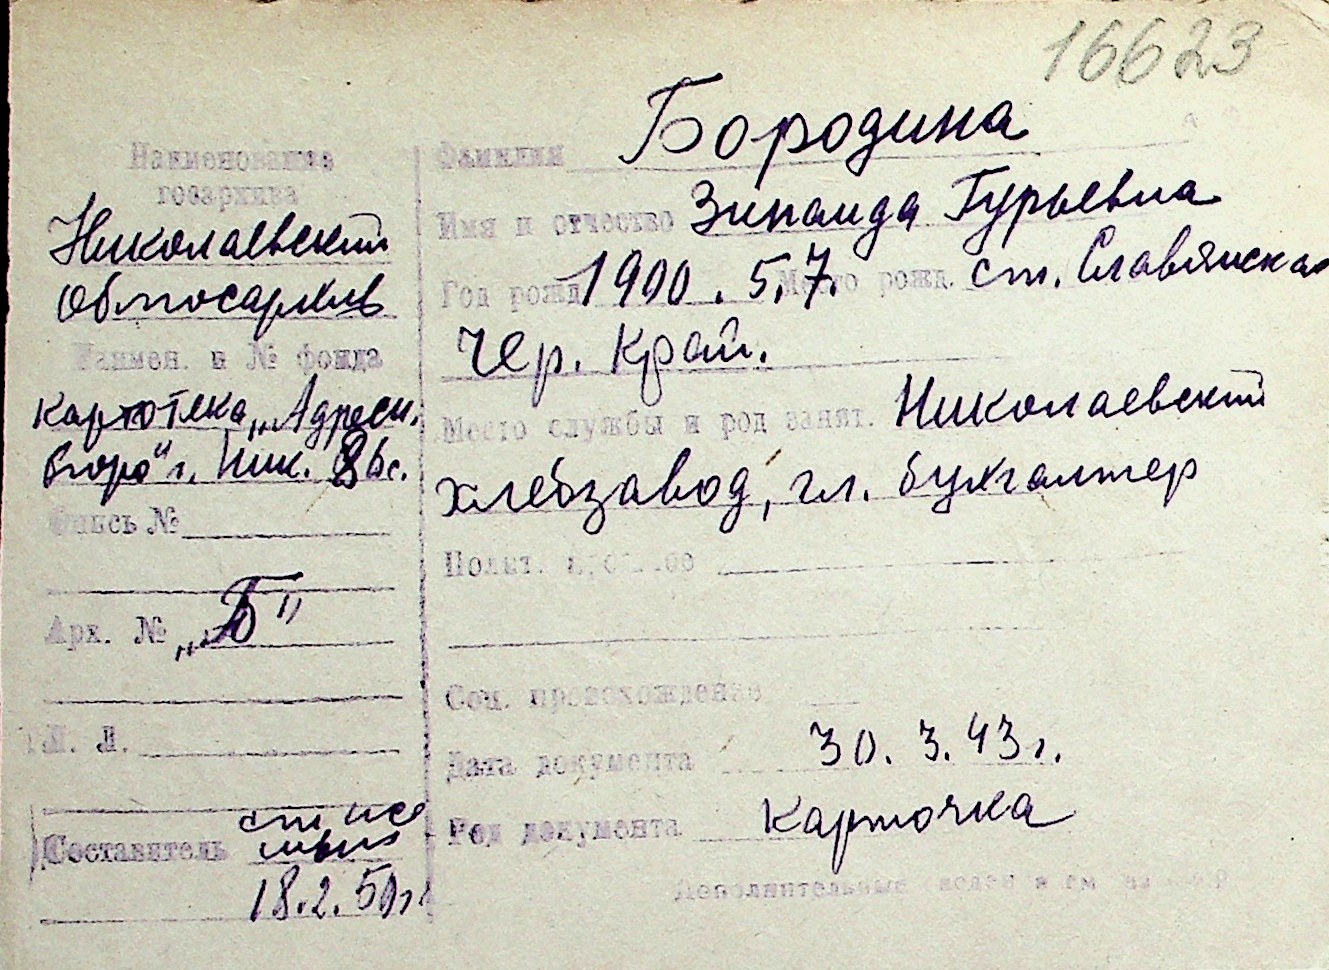 16623
Наименование
госархива
Николаевский
Облгосархив
Наимен. и № фонда
Картотека „Адресн.
бюро" г. Ник. 86 с.
Опись №
Арх. № „Б"
Л. Л.
Составитель
18.2.50 г.
Фамилия Бородина
Имя и отчество Зинаида Гурьевна
Год рожд. 1900. 5.7. Место рожд. ст. Славянская
Чер. Край.
Место службы и род занят. Николаевский
хлебзавод, гл. бухгалтер
Полит. прошлое
Соц. происхождение
Дата документа 30. 3. 43 г.
Род документа Карточка
Дополнительные сведения см. на